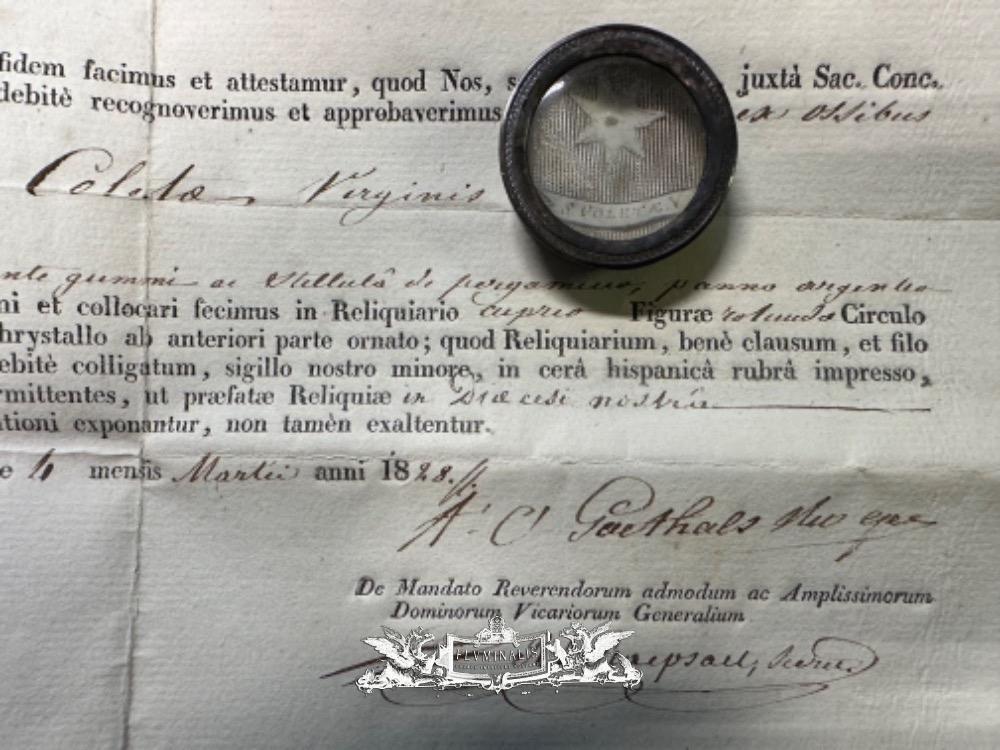 fidem facimus et attestamur, quod Nos, s juxtà Sac. Conc.
debitè recognoverimus et approbaverimus ex ossibus
Coletæ Virginis
S COLETÆ V
nte gummi ac stellulâ de pergameno, panno argenteo
ni et collocari fecimus in Reliquiario cupreo Figuræ rotunda Circulo
hrystallo ab anteriori parte ornato; quod Reliquiarium, benè clausum, et filo
ebitè colligatum, sigillo nostro minore, in cerâ hispanicâ rubrâ impresso,
rmittentes, ut præfatæ Reliquiæ in Diœcesi nostrâ
ationi exponantur, non tamèn exaltentur.
e 4 mensis Martii anni 1828.
Goethals
De Mandato Reverendorum admodum ac Amplissimorum
Dominorum Vicariorum Generalium
FLVMINALIS